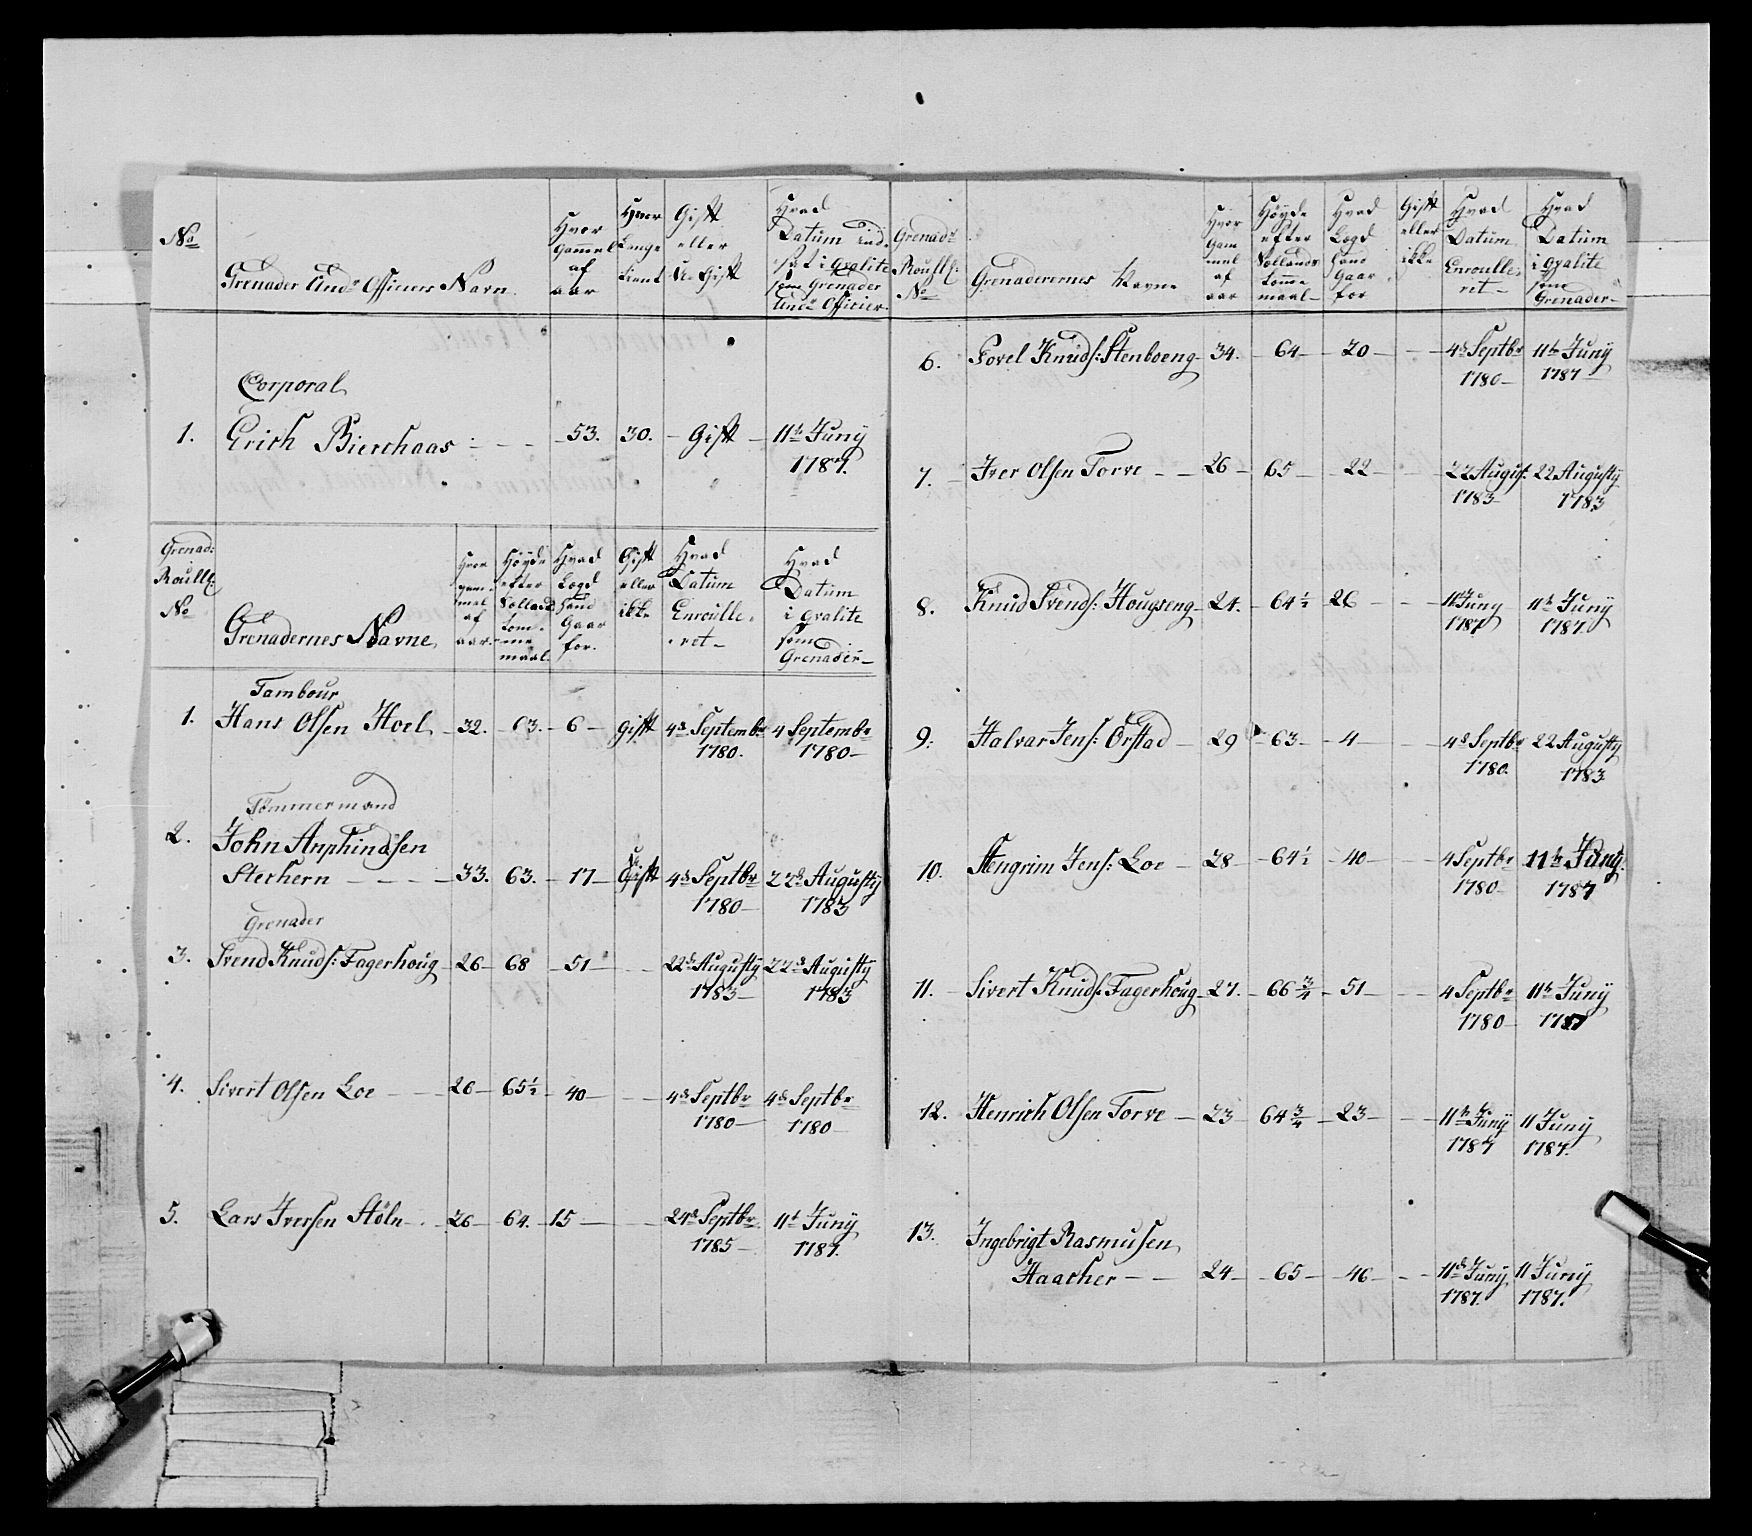 No
Grenader Und: Officiers Navn
Hvor gammel af aar
Hvor Længe tient
Gift eller U-Gift
Hvad Datum ind- sat i Qvalite som Grenader Und: Officier
Corporal
1. Erich Bierchaas - - - 53. 30. - Gift - 11te Juny
1787.
Grenad: Roulle No
Grenadernes Navne
Hvor gam- mel af aar
Høyde efter Sollands tom- me maal
Hvad Lægd hand Gaar for
Gift eller ikke
Hvad Datum Enroulle- ret
Hvad Datum i Qvalite som Grenader
Tambour
1. Hans Olsen Hoel - 32. - 63. - 6 - Gift 4de Septembr 4 Septembr
1780. 1780 -
Tømmermand
2. John Arnphindsen
Sterhern - - - - 33. 63. - 17 - U Gift 4de Septbr 22de Augusty
1780 - 1783
Grenader
3. Svend Knuds: Fagerhoug - 26 - 68 - 51 - - 22de Augusty 22de Augusty
1783 - 1783
4. Sivert Olsen Loe - - 26 - 65 1/2 - 40 - - - 4de Septbr 4de Septbr
1780 - 1780 -
5. Lars Iversen Støln - - 26 - 64. 15 - - 24de Septbr 11te Juny
1785 - 1787.
Grenadr Roulle: No
Grenaderernes Navne
Hvor Gam mel af aar
Høyde efter Sollands tomme maal -
Hvad Lægd hand Gaar for
Gift eller ikke
Hvad Datum Enroulle- ret -
Hvad Datum i Qvalite som Grenader -
6. Povel Knuds: Stenboeng - 34. - 64 - 20 - - 4de Septbr 11te Juny
1780 - 1787 -
7. - Iver Olsen Torve - - 26 - 65 - 22 - 22 August: 22 Augusty
1783 1783
8. Knud Svends: Hougseng - 24. - 64 1/2 26 - - - 11te Juny 11te Juny
1787 1787.
9. Halvar Jens: Ørstad - 29 - 63 - - 4 - - 4de Septbr 22 Augusty
1780. 1783
10. Stengrim Jens: Loe - 28 - 64 1/2 - 40 - - 4 Septbr 11te Juny
1780 - 1787
11. Sivert Knuds: Fagerhoug - 27. - 66 3/4 - 51 - - 4 Septbr 11te Juny
1780 - 1787
12. Henrich Olsen Torve - 23 - 64 3/4 - 23 - - 11te Juny 11 Juny
1787 1787.
13. Ingebrigt Rasmusen
Haacher - - 24 - - 65 - - 46 - - - 11te Juny 11 Juny
1787. 1787.